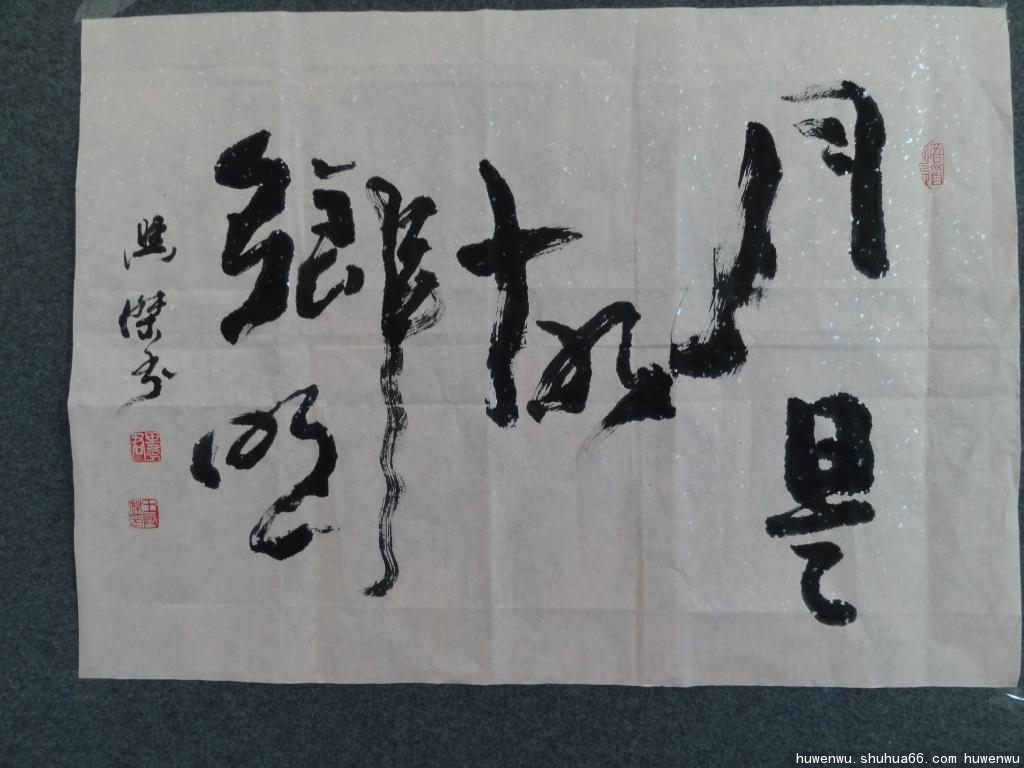 悟道
月是
故
鄉明
傑书
huwenwu.shuhua66.com huwenwu